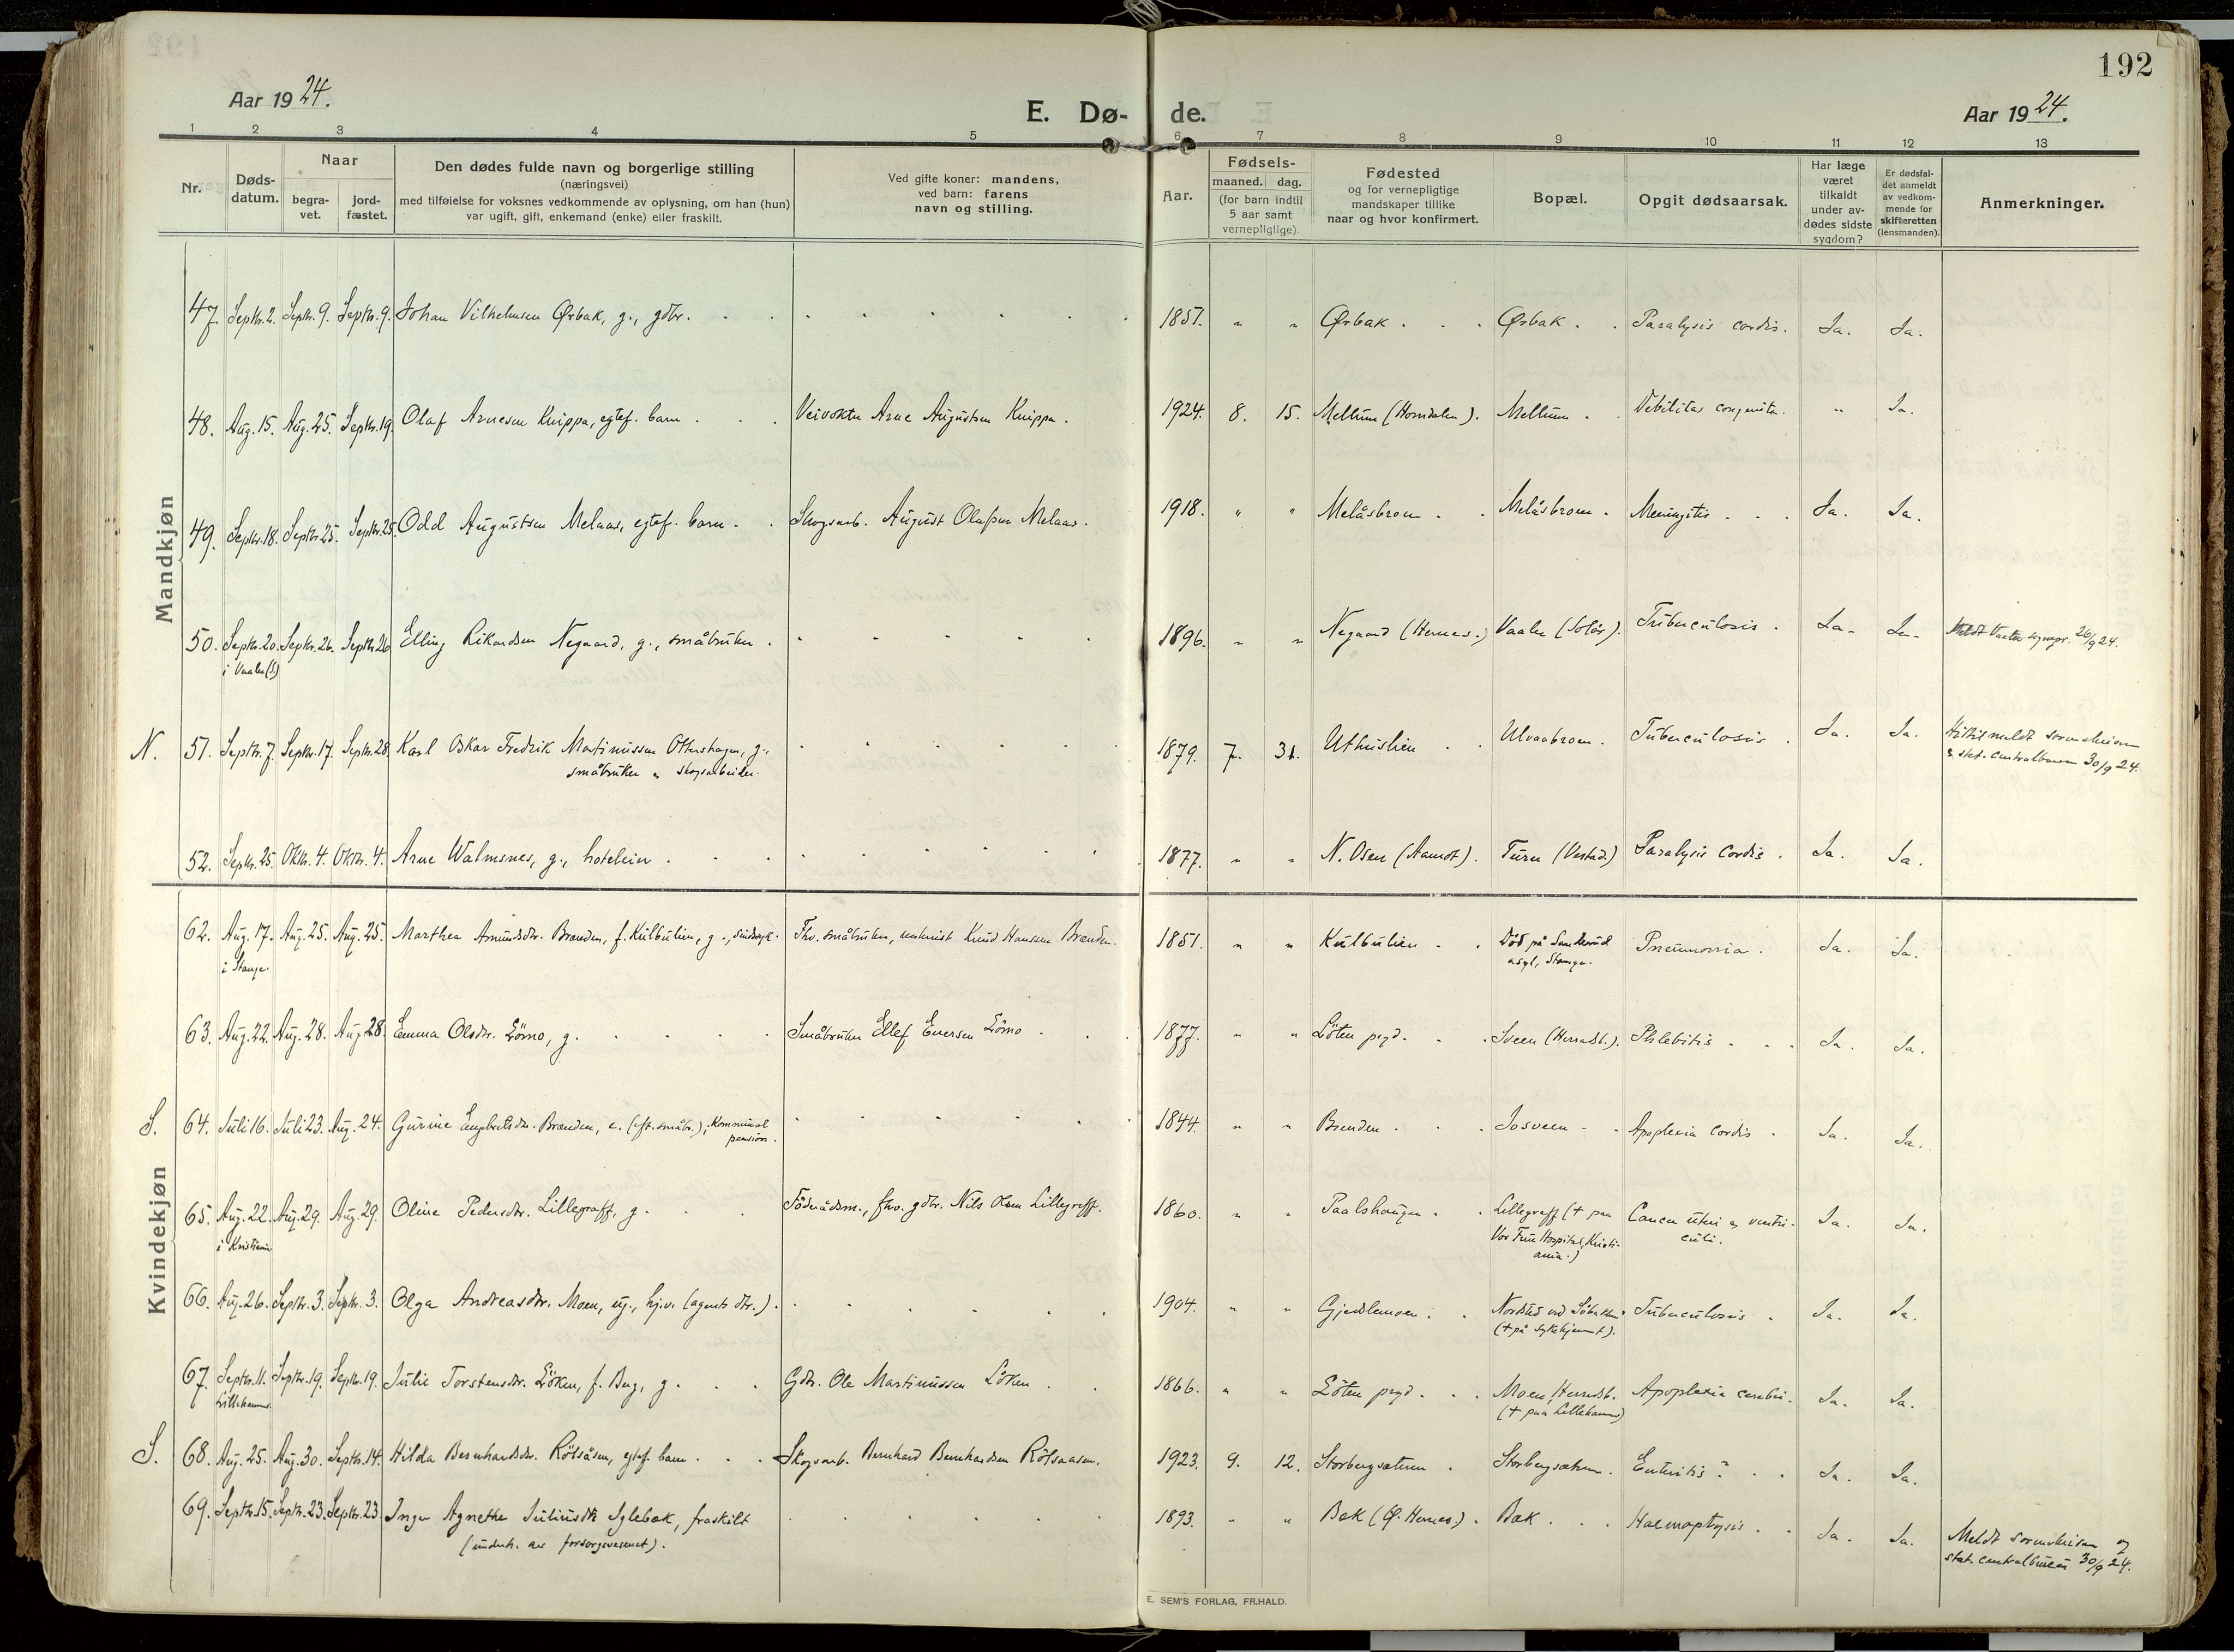 192
Aar 1924.
E. Dø-
de.
Aar 1924.
1 2 3 4 5 6 7 8 9 10 11 12 13
Nr.
Døds-
datum.
Naar
begra-
vet.
jord-
fæstet.
Den dødes fulde navn og borgerlige stilling
(næringsvei)
med tilføielse for voksnes vedkommende av oplysning, om han (hun)
var ugift, gift, enkemand (enke) eller fraskilt.
Ved gifte koner: mandens,
ved barn: farens
navn og stilling.
Aar.
Fødsels-
maaned. dag.
(for barn indtil
5 aar samt
vernepligtige).
Fødested
og for vernepligtige
mandskaper tillike
naar og hvor konfirmert.
Bopæl.
Opgit dødsaarsak.
Har læge
været
tilkaldt
under av-
dødes sidste
sygdom?
Er dødsfal-
det anmeldt
av vedkom-
mende for
skifteretten
(lensmanden).
Anmerkninger.
Mandkjøn
47. Septbr. 2. Septbr. 9. Septbr. 9. Johan Vilhelmsen Ørbak, g., gdbr. 1851. " " Ørbak. Ørbak. Paralysis cordis. Ja. Ja.
48. Aug. 15. Aug. 25. Septbr. 19. Olaf Arnesen Knippa, egtef. barn. Veivokter Arne Augustsen Knippa. 1924. 8. 15. Mellum (Horndalen). Mellum. Debilitas congenita. " Ja.
49. Septbr. 18. Septbr. 25. Septbr. 25. Odd Augustsen Melaas, egtef. barn. Skogsarb. August Olafsen Melaas. 1918. " " Melåsbroen. Melåsbroen. Meningitis. Ja. Ja.
50. Septbr. 20. Septbr. 26. Septbr. 26 Elling Rikardsen Negaard, g., småbruker. 1896. " " Negaard (Hernes.) Vaaler (Solør). Tuberculosis. Ja. Ja. Meldt Vaaler sognepr. 26/9 24.
i Vaaler (S)
N. 51. Septbr. 7. Septbr. 17. Septbr. 28. Karl Oskar Fredrik Martinussen Ottershagen, g., 1879. 7. 31. Uthuslien. Ulvaabroen. Tuberculosis. Ja. Ja.
småbruker og skogsarbeider. stat. centralbureau 30/9 24.
52. Septbr. 25. Oktbr. 4. Oktbr. 4. Arne Walmsnes, g., hoteleier. 1877. " " N. Osen (Aamot). Turu (Vestad.) Paralysis Cordis. Ja. Ja.
Kvindekjøn
62. Aug. 17. Aug. 25. Aug. 25. Marthea Amundsdtr. Brænden, f. Kulbulien, g., sindssyk. Fhv. småbruker, Knud Hansen Brænden. 1851. " " Kulbulien. Död på Sanderud Pneumonia. Ja. Ja.
i Stange. asyl, Stange.
63. Aug. 22. Aug. 28. Aug. 28. Emma Olsdtr. Lömo, g. Småbruker Ellef Evensen Lömo. 1877. " " Löten prgd. Sveen (Herradsb.). Phlebitis. Ja. Ja.
S. 64. Juli 16. Juli 23. Aug. 24. Gurine Engebretsdtr. Brænden, e. (eft. småbr.), kommunal 1844. " " Brænden. Josveen. Apoplexia cordis. Ja. Ja.
pension.
65. Aug. 22. Aug. 29. Aug. 29. Oline Pedersdtr. Lillegraff, g. Föderådsm., fhv. gdbr. Nils Olsen Lillegraff. 1860. " " Paalshaugen. Lillegraff († paa Cancer uteri og ventri-
i Kristiania Vor Frue Hospital, Kristi- culi. Ja. Ja.
ania.)
66. Aug. 26. Septbr. 3. Septbr. 3. Olga Andreasdtr. Moen, ug., hjv. (agents dtr.). 1904. " " Gjedslemoen. Nordstad ved Tuberculosis. Ja. Ja.
(† på sykehjemmet).
67. Septbr. 11. Septbr. 19. Septbr. 19. Julie Torstensdtr. Löken, f. Berg, g. Gdbr. Ole Martinussen Löken. 1866. " " Löten prgd. Moen, Herradsb. Apoplexia cerebri. Ja. Ja.
Lillehammer. († paa Lillehammer)
S. 68. Aug. 25. Aug. 30. Septbr. 14. Hilda Bernhardsdtr. Rötsåsen, egtef. barn. Skogsarb. Bernhard Bernhardsen Rötsaasen. 1923. 9. 12. Storbergsætren. Storbergsætren. Enteritis? Ja. Ja.
69. Septbr. 15. Septbr. 23. Septbr. 23. Inger Agnethe Juliusdtr. Sglebæk, fraskilt 1893. " " Bæk (Ø. Hernes). Bæk. Haemoptysis. Ja. Ja. Meldt sorenskriveren og
(underh. av forsorgsvesenet). stat. centralbureau 30/9 24.
E. SEM'S FORLAG, FR.HALD.